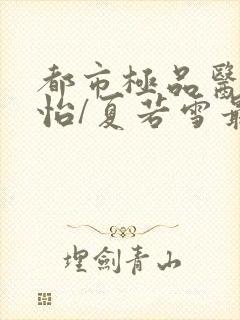 都市極品醫
怡/夏若雪最
埋劍青山